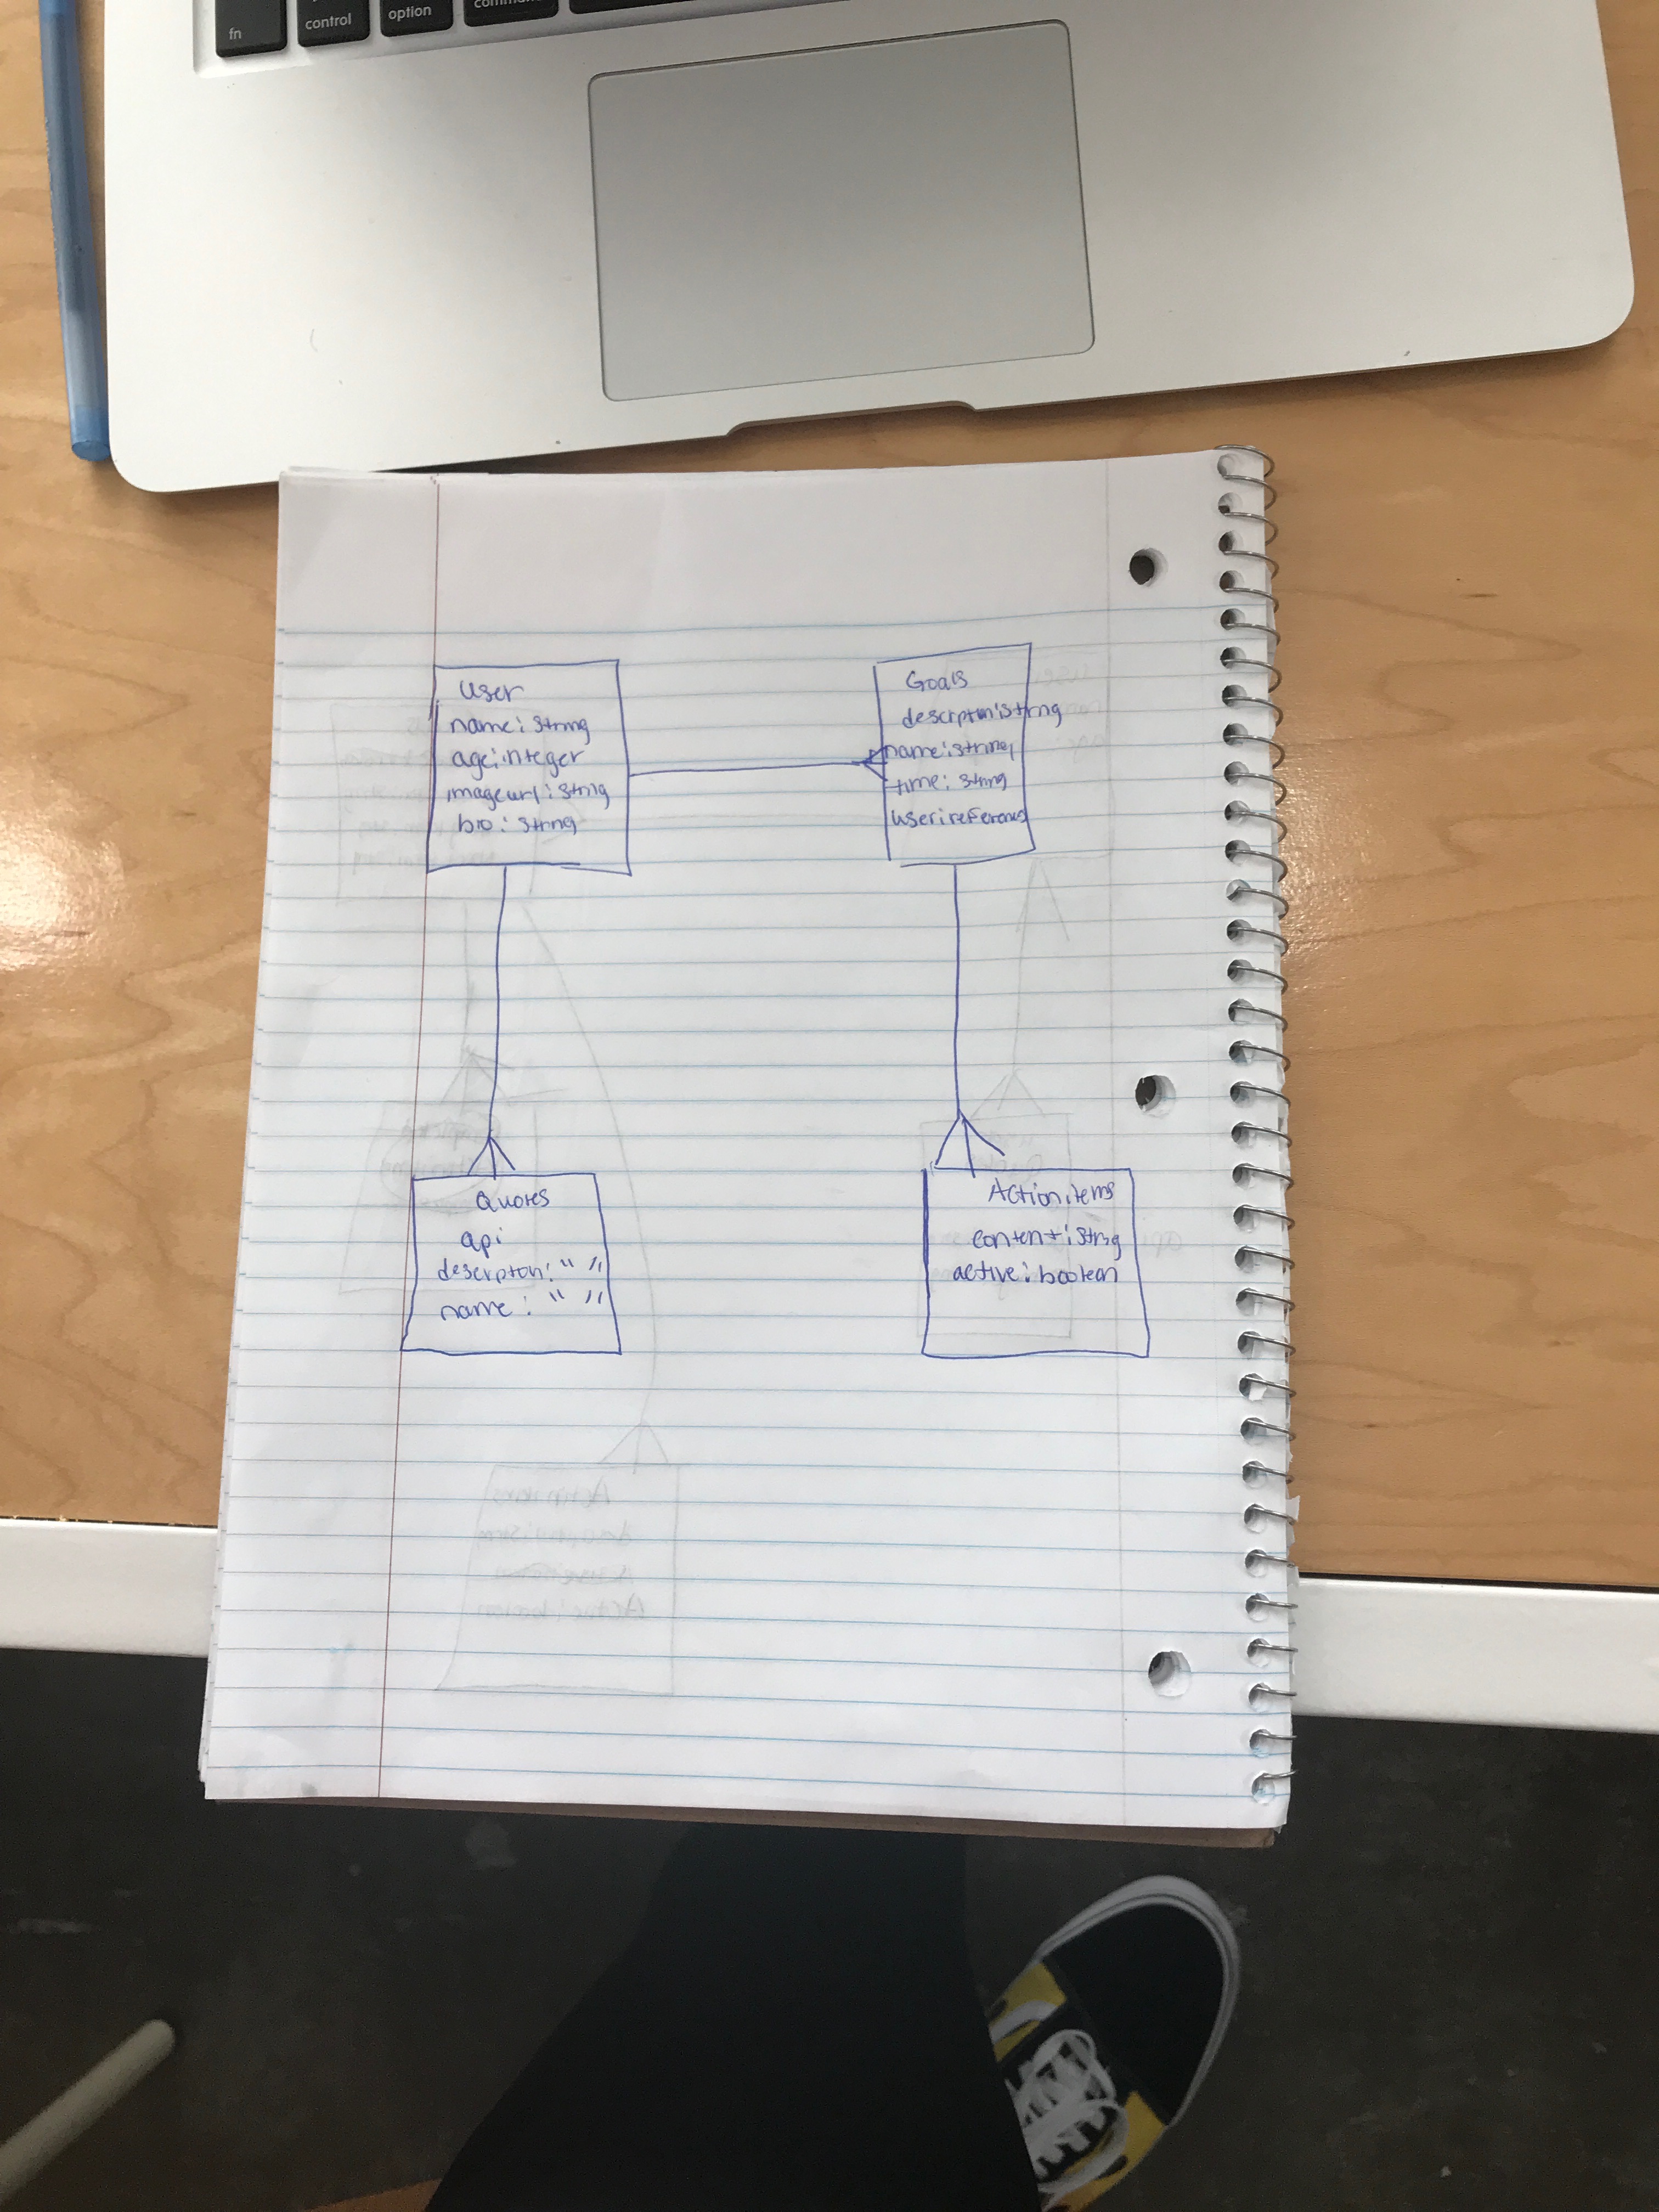 fn
control
option
User
name: string
age: integer
imageurl: string
bio: string
Goals
descripton: string
name: string
time: string
user: references
Quotes
api
descripton: " "
name: " "
Action items
content: string
active: boolean